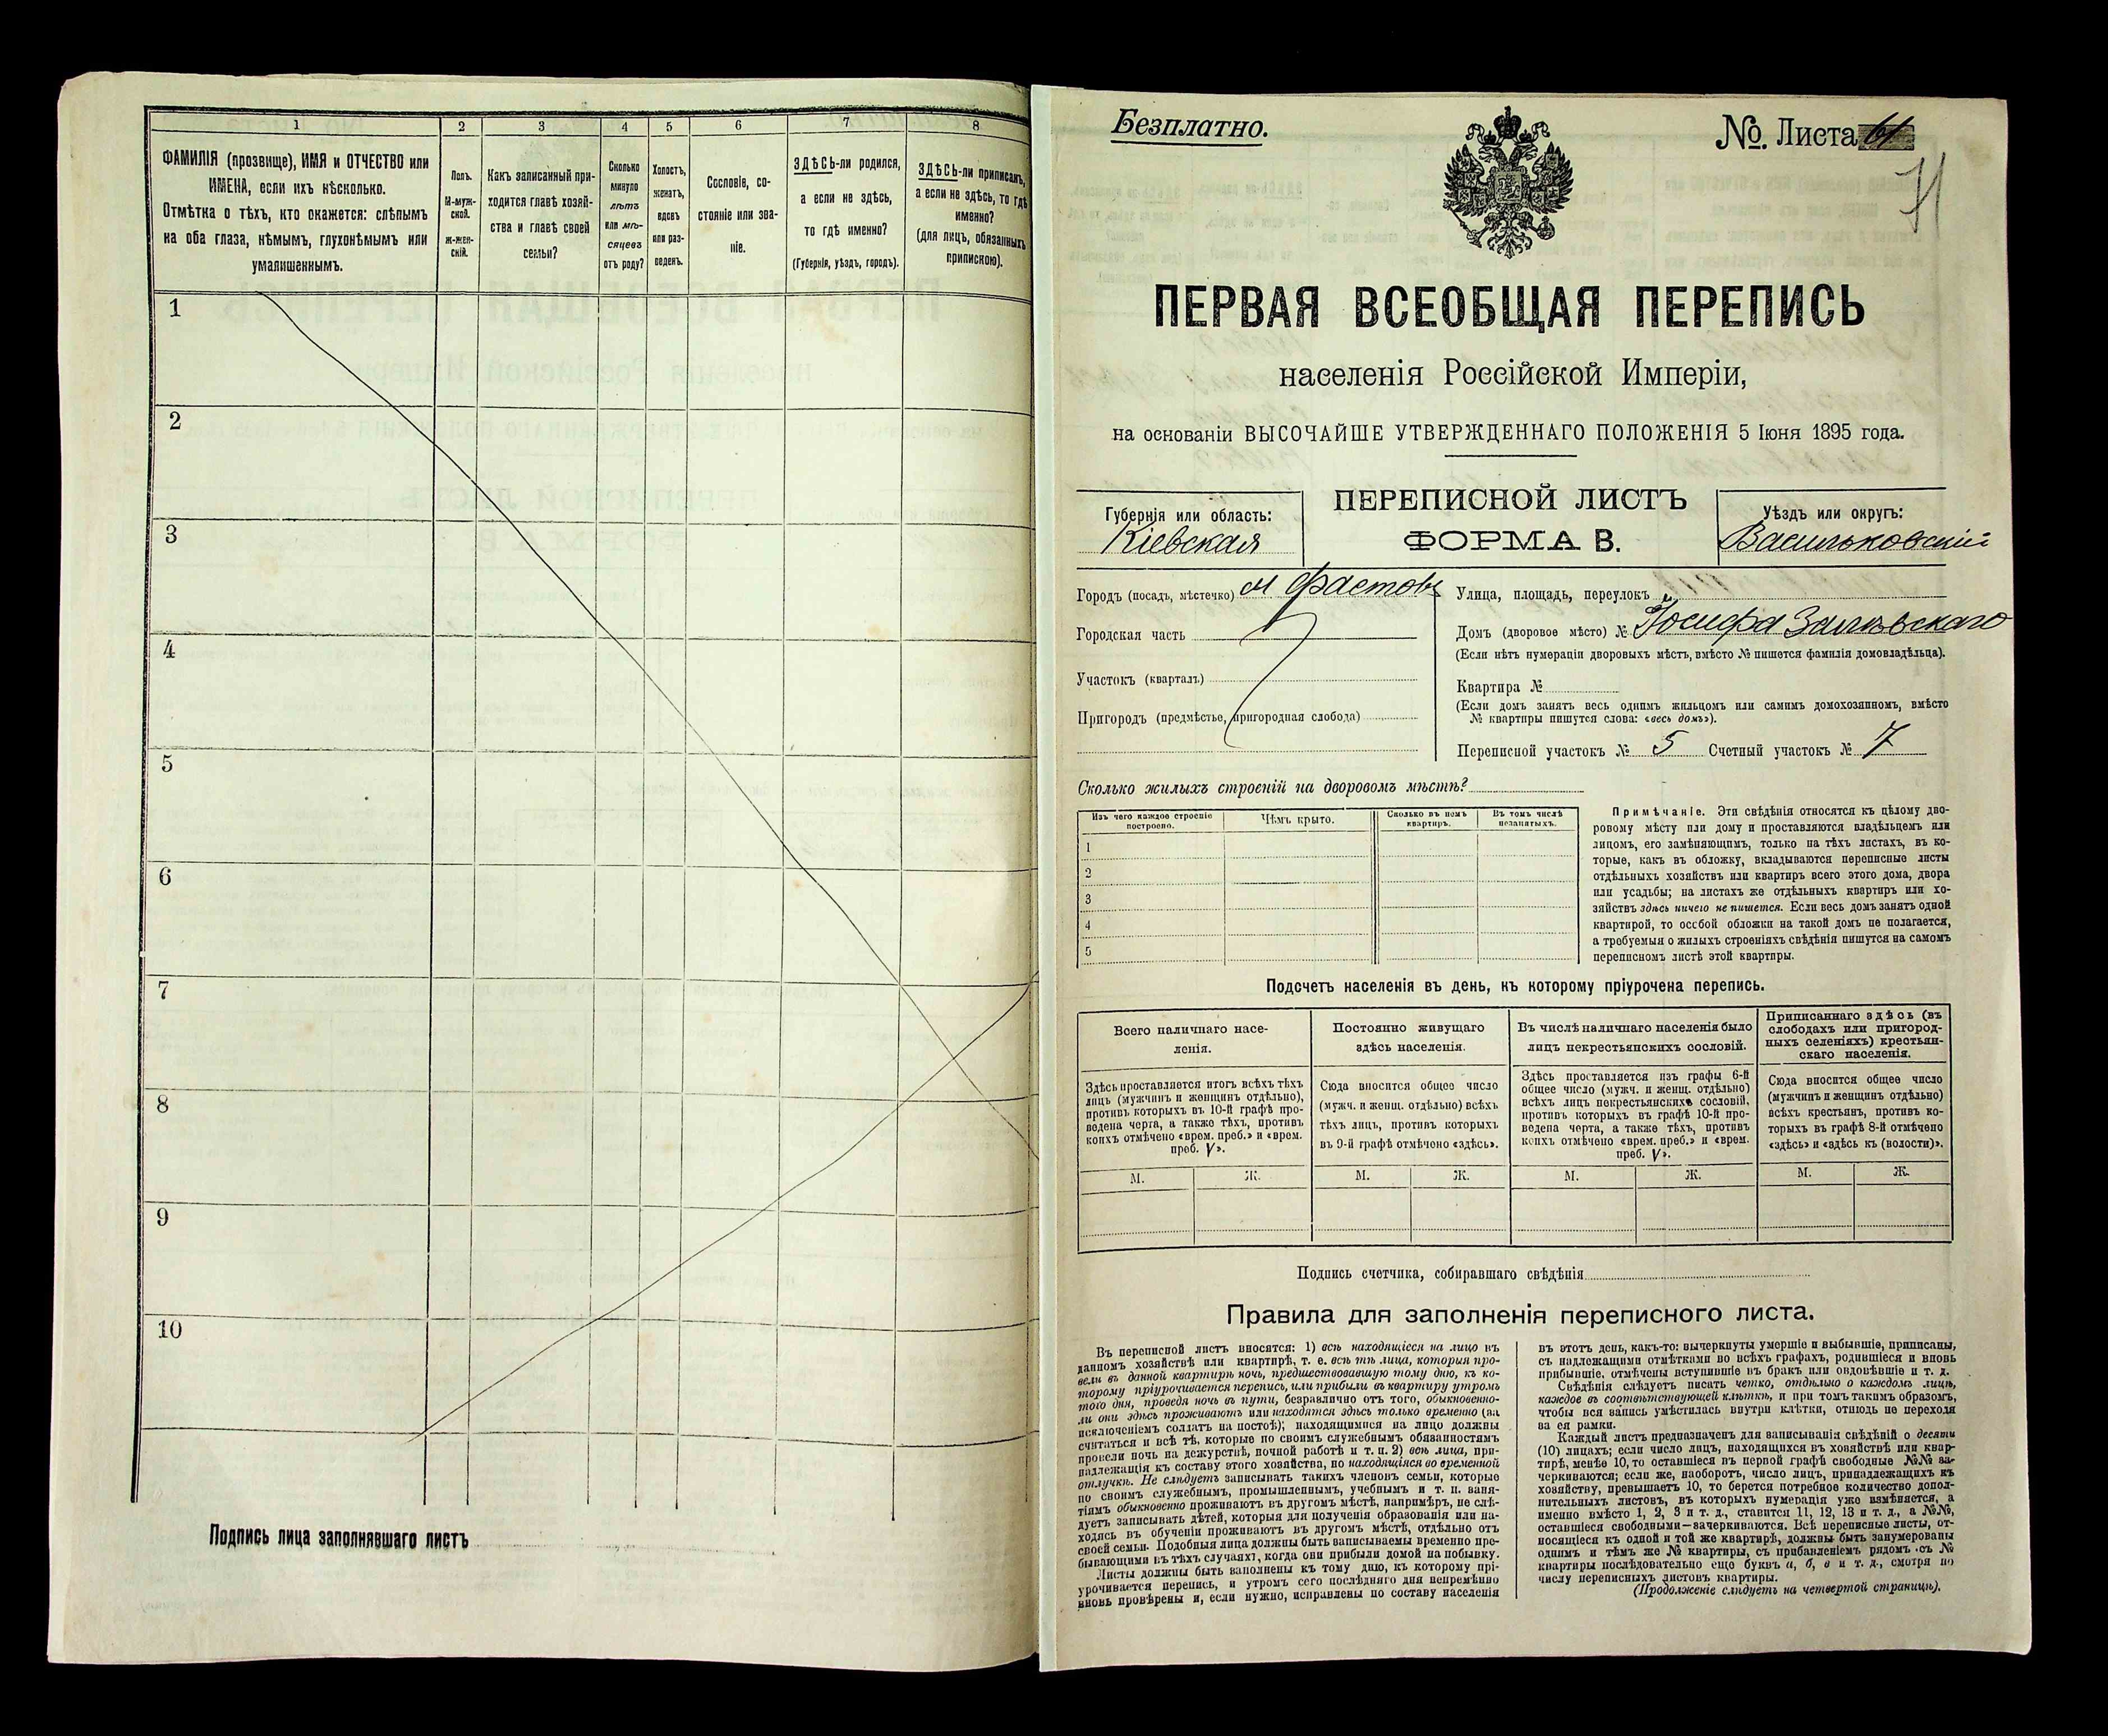 1
2
3
4
5
6
7
8
ФАМИЛІЯ (прозвище), ИМЯ и ОТЧЕСТВО или
ИМЕНА, если ихъ нѣсколько.
Отмѣтка о тѣхъ, кто окажется: слѣпымъ
на оба глаза, нѣмымъ, глухонѣмымъ или
умалишеннымъ.
Полъ.
М-муж-
ской.
ж-жен-
скій.
Какъ записанный при-
ходится главѣ хозяй-
ства и главѣ своей
семьи?
Сколько
минуло
лѣтъ
или мѣ-
сяцевъ
отъ роду?
Холостъ,
женатъ,
вдовъ
или раз-
веденъ.
Сословіе, со-
стояніе или зва-
ніе.
ЗДѢСЬ-ли родился,
а если не здѣсь,
то гдѣ именно?
(Губернія, уѣздъ, городъ).
ЗДѢСЬ-ли приписанъ,
а если не здѣсь, то гдѣ
именно?
(для лицъ, обязанныхъ
припискою).
1
2
3
4
5
6
7
8
9
10
Подпись лица заполнявшаго листъ
Безплатно.
№ Листа 61
71
ПЕРВАЯ ВСЕОБЩАЯ ПЕРЕПИСЬ
населенія Россійской Имперіи,
на основаніи ВЫСОЧАЙШЕ УТВЕРЖДЕННАГО ПОЛОЖЕНІЯ 5 Іюня 1895 года.
Губернія или область:
Кіевская
ПЕРЕПИСНОЙ ЛИСТЪ
ФОРМА В.
Уѣздъ или округъ:
Васильковскій
Городъ (посадъ, мѣстечко) м Фастовъ
Городская часть
Участокъ (кварталъ)
Пригородъ (предмѣстье, пригородная слобода)
Улица, площадь, переулокъ
Домъ (дворовое мѣсто) № Іосифа
(Если нѣтъ нумераціи дворовыхъ мѣстъ, вмѣсто № пишется фамилія домовладѣльца).
Квартира №
(Если домъ занятъ весь однимъ жильцомъ или самимъ домохозяиномъ, вмѣсто
№ квартиры пишутся слова: «весь домъ»).
Переписной участокъ № 5 Счетный участокъ № 7
Сколько жилыхъ строеній на дворовомъ мѣстѣ?
Изъ чего каждое строеніе
построено.
Чѣмъ крыто.
Сколько въ немъ
квартиръ.
Въ томъ числѣ
незанятыхъ.
1
2
3
4
5
Примѣчаніе. Эти свѣдѣнія относятся къ цѣлому дво-
ровому мѣсту или дому и проставляются владѣльцемъ или
лицомъ, его замѣняющимъ, только на тѣхъ листахъ, въ ко-
торые, какъ въ обложку, вкладываются переписные листы
отдѣльныхъ хозяйствъ или квартиръ всего этого дома, двора
или усадьбы; на листахъ же отдѣльныхъ квартиръ или хо-
зяйствъ здѣсь ничего не пишется. Если весь домъ занятъ одной
квартирой, то особой обложки на такой домъ не полагается,
а требуемыя о жилыхъ строеніяхъ свѣдѣнія пишутся на самомъ
переписномъ листѣ этой квартиры.
Подсчетъ населенія въ день, къ которому пріурочена перепись.
Всего наличнаго насе-
ленія.
Постоянно живущаго
здѣсь населенія.
Въ числѣ наличнаго населенія было
лицъ некрестьянскихъ сословій.
Приписаннаго здѣсь (въ
слободахъ или пригород-
ныхъ селеніяхъ) крестьян-
скаго населенія.
Здѣсь проставляется итогъ всѣхъ тѣхъ
лицъ (мужчинъ и женщинъ отдѣльно),
противъ которыхъ въ 10-й графѣ про-
ведена черта, а также тѣхъ, противъ
коихъ отмѣчено «врем. преб.» и «врем.
преб. V».
Сюда вносится общее число
(мужч. и женщ. отдѣльно) всѣхъ
тѣхъ лицъ, противъ которыхъ
въ 9-й графѣ отмѣчено «здѣсь».
Здѣсь проставляется изъ графы 6-й
общее число (мужч. и женщ. отдѣльно)
всѣхъ лицъ некрестьянскихъ сословій,
противъ которыхъ въ графѣ 10-й про-
ведена черта, а также тѣхъ, противъ
коихъ отмѣчено «врем. преб.» и «врем.
преб. V».
Сюда вносится общее число
(мужчинъ и женщинъ отдѣльно)
всѣхъ крестьянъ, противъ ко-
торыхъ въ графѣ 8-й отмѣчено
«здѣсь» и «здѣсь къ (волости)».
М. Ж. М. Ж. М. Ж. М. Ж.
Подпись счетчика, собиравшаго свѣдѣнія
Правила для заполненія переписного листа.
Въ переписной листъ вносятся: 1) всѣ находящіеся на лицо въ
данномъ хозяйствѣ или квартирѣ, т. е. всѣ тѣ лица, которыя про-
вели въ данной квартирѣ ночь, предшествовавшую тому дню, къ ко-
торому пріурочивается перепись, или прибыли въ квартиру утромъ
того дня, проведя ночь въ пути, безразлично отъ того, обыкновенно-
ли они здѣсь проживаютъ или находятся здѣсь только временно (за
исключеніемъ солдатъ на постоѣ); находящимися на лицо должны
считаться и всѣ тѣ, которые по своимъ служебнымъ обязанностямъ
провели ночь на дежурствѣ, ночной работѣ и т. п. 2) всѣ лица, при-
надлежащія къ составу этого хозяйства, но находящіяся во временной
отлучкѣ. Не слѣдуетъ записывать такихъ членовъ семьи, которые
по своимъ служебнымъ, промышленнымъ, учебнымъ и т. п. заня-
тіямъ обыкновенно проживаютъ въ другомъ мѣстѣ, напримѣръ, не слѣ-
дуетъ записывать дѣтей, которыя для полученія образованія или на-
ходясь въ обученіи проживаютъ въ другомъ мѣстѣ, отдѣльно отъ
своей семьи. Подобныя лица должны быть записываемы временно пре-
бывающими въ тѣхъ случаяхъ, когда они прибыли домой на побывку.
Листы должны быть заполнены къ тому дню, къ которому прі-
урочивается перепись, и утромъ сего послѣдняго дня непремѣнно
вновь провѣрены и, если нужно, исправлены по составу населенія
въ этотъ день, какъ-то: вычеркнуты умершіе и выбывшіе, приписаны,
съ надлежащими отмѣтками во всѣхъ графахъ, родившіеся и вновь
прибывшіе, отмѣчены вступившіе въ бракъ или овдовѣвшіе и т. д.
Свѣдѣнія слѣдуетъ писать четко, отдѣльно о каждомъ лицѣ,
каждое въ соотвѣтствующей клѣткѣ, и при томъ такимъ образомъ,
чтобы вся запись умѣстилась внутри клѣтки, отнюдь не переходя
за ея рамки.
Каждый листъ предназначенъ для записыванія свѣдѣній о десяти
(10) лицахъ; если число лицъ, находящихся въ хозяйствѣ или квар-
тирѣ, менѣе 10, то оставшіеся въ первой графѣ свободные №№ за-
черкиваются; если же, наоборотъ, число лицъ, принадлежащихъ къ
хозяйству, превышаетъ 10, то берется потребное количество допол-
нительныхъ листовъ, въ которыхъ нумерація уже измѣняется, а
именно вмѣсто 1, 2, 3 и т. д., ставится 11, 12, 13 и т. д., а №№,
оставшіеся свободными—зачеркиваются. Всѣ переписные листы, от-
носящіеся къ одной и той же квартирѣ, должны быть занумерованы
однимъ и тѣмъ же № квартиры, съ прибавленіемъ рядомъ съ №
квартиры послѣдовательно еще буквъ а, б, в и т. д., смотря по
числу переписныхъ листовъ квартиры.
(Продолженіе слѣдуетъ на четвертой страницѣ).